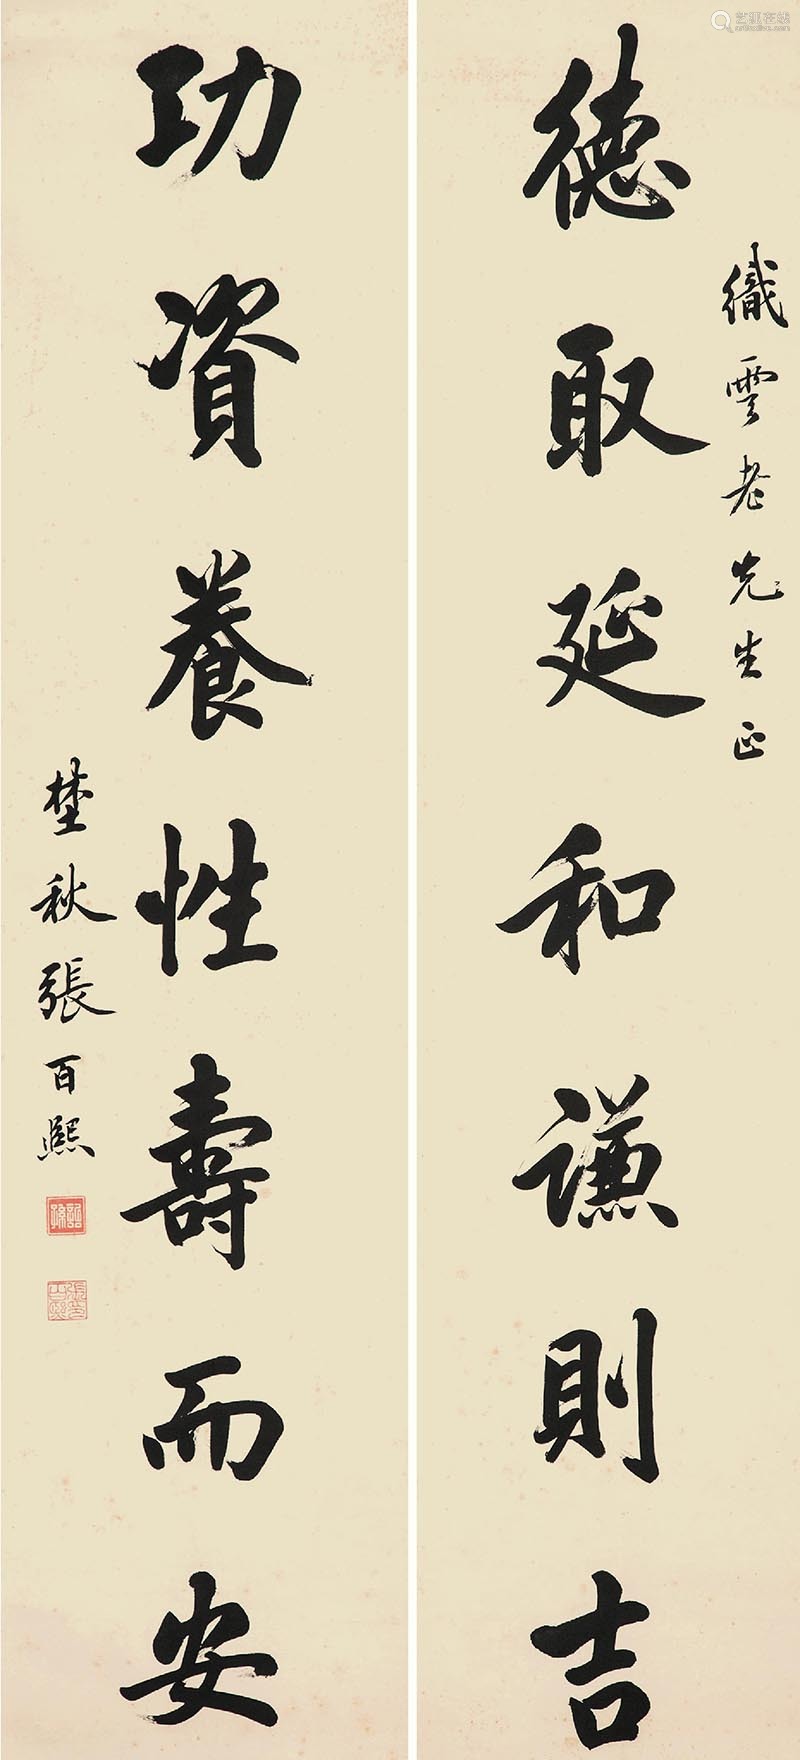 織雲老先生正
德取延和謙則吉
功資養性壽而安
埜秋張百熙
艺狐在线